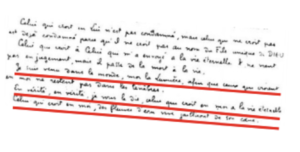 Celui qui croit en Lui n'est pas condamné, mais celui qui ne croit pas
est déjà condamné parce qu'il ne croit pas au nom du Fils unique de DIEU
Celui qui croit à Celui qui m'a envoyé a la vie éternelle et ne vient
pas en jugement, mais il passe de la mort à la vie.
Je suis venu dans le monde, moi la lumière, afin que ceux qui croient
en moi ne restent pas dans les ténèbres.
En vérité, en vérité, je vous le dis, celui qui croit en moi a la vie éternelle
Celui qui croit en moi, des fleuves d'eau vive jailliront de son cœur.